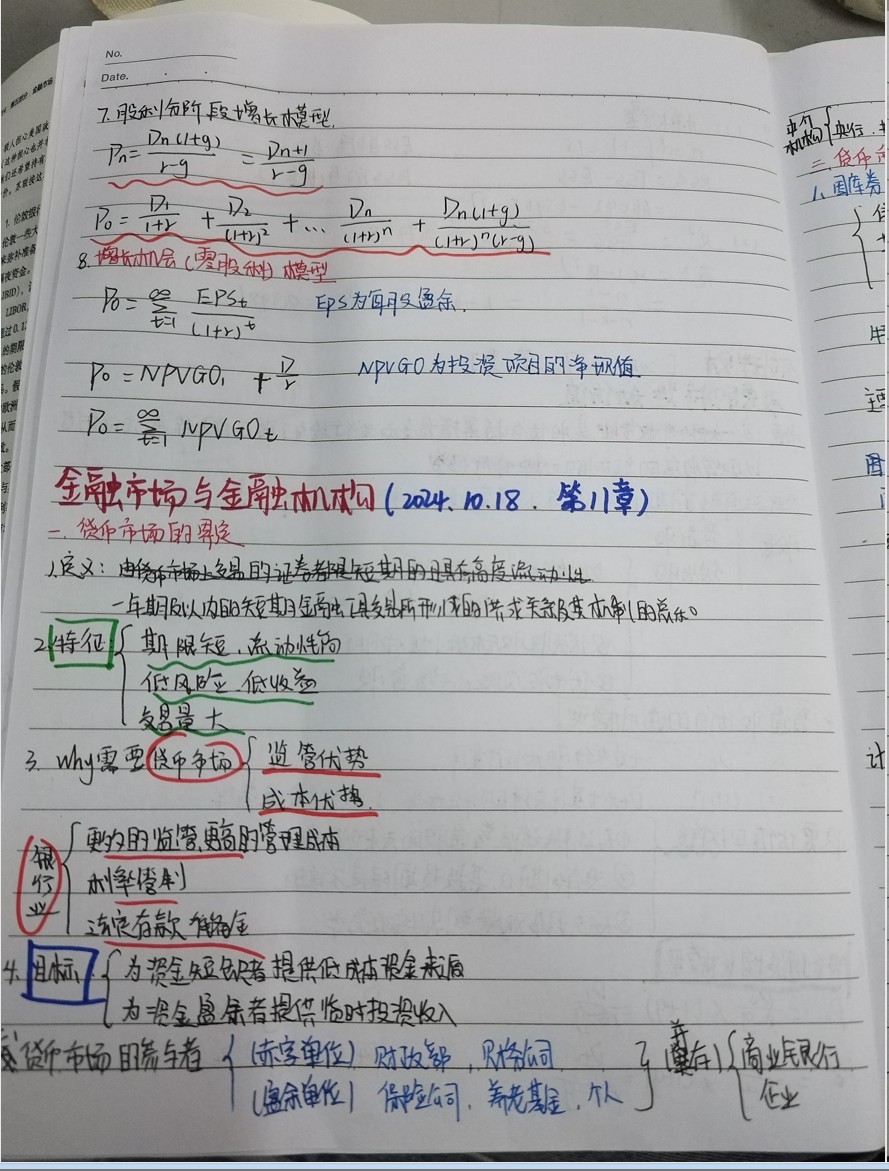 No.
Date.
7. 股利分阶段增长模型
Pn = Dn(1+g)/(r-g) = Dn+1/(r-g)
P0 = D1/(1+r) + D2/(1+r)² + … Dn/(1+r)ⁿ + Dn(1+g)/((1+r)ⁿ(r-g))
8. 增长机会(零股利)模型
P0 = ∞Σt=1 EPSt/(1+r)^t EPS为每股盈余.
P0 = NPVGO1 + D/r NPVGO为投资项目的净现值
P0 = ∞Σt=1 NPVGOt
金融市场与金融机构(2024.10.18. 第11章)
一. 货币市场的界定
1. 定义: 由货币市场上交易的证券都是短期的且具有高度流动性
一年期及以内的短期金融工具交易所形成的供求关系及其机制的总和。
2. 特征 期限短、流动性高
低风险、低收益
交易量大
3. Why需要货币市场 监管优势
成本优势
银行业 更多的监管,更高的管理成本
利率管制
法定存款准备金
4. 目标 为资金短缺者提供低成本资金来源
为资金盈余者提供临时投资收入
货币市场的参与者 (赤字单位) 财政部, 财务公司
(盈余单位) 保险公司、养老基金、个人
(兼存) 商业银行
企业
央行
机构
二. 货币市
1. 国库券
计